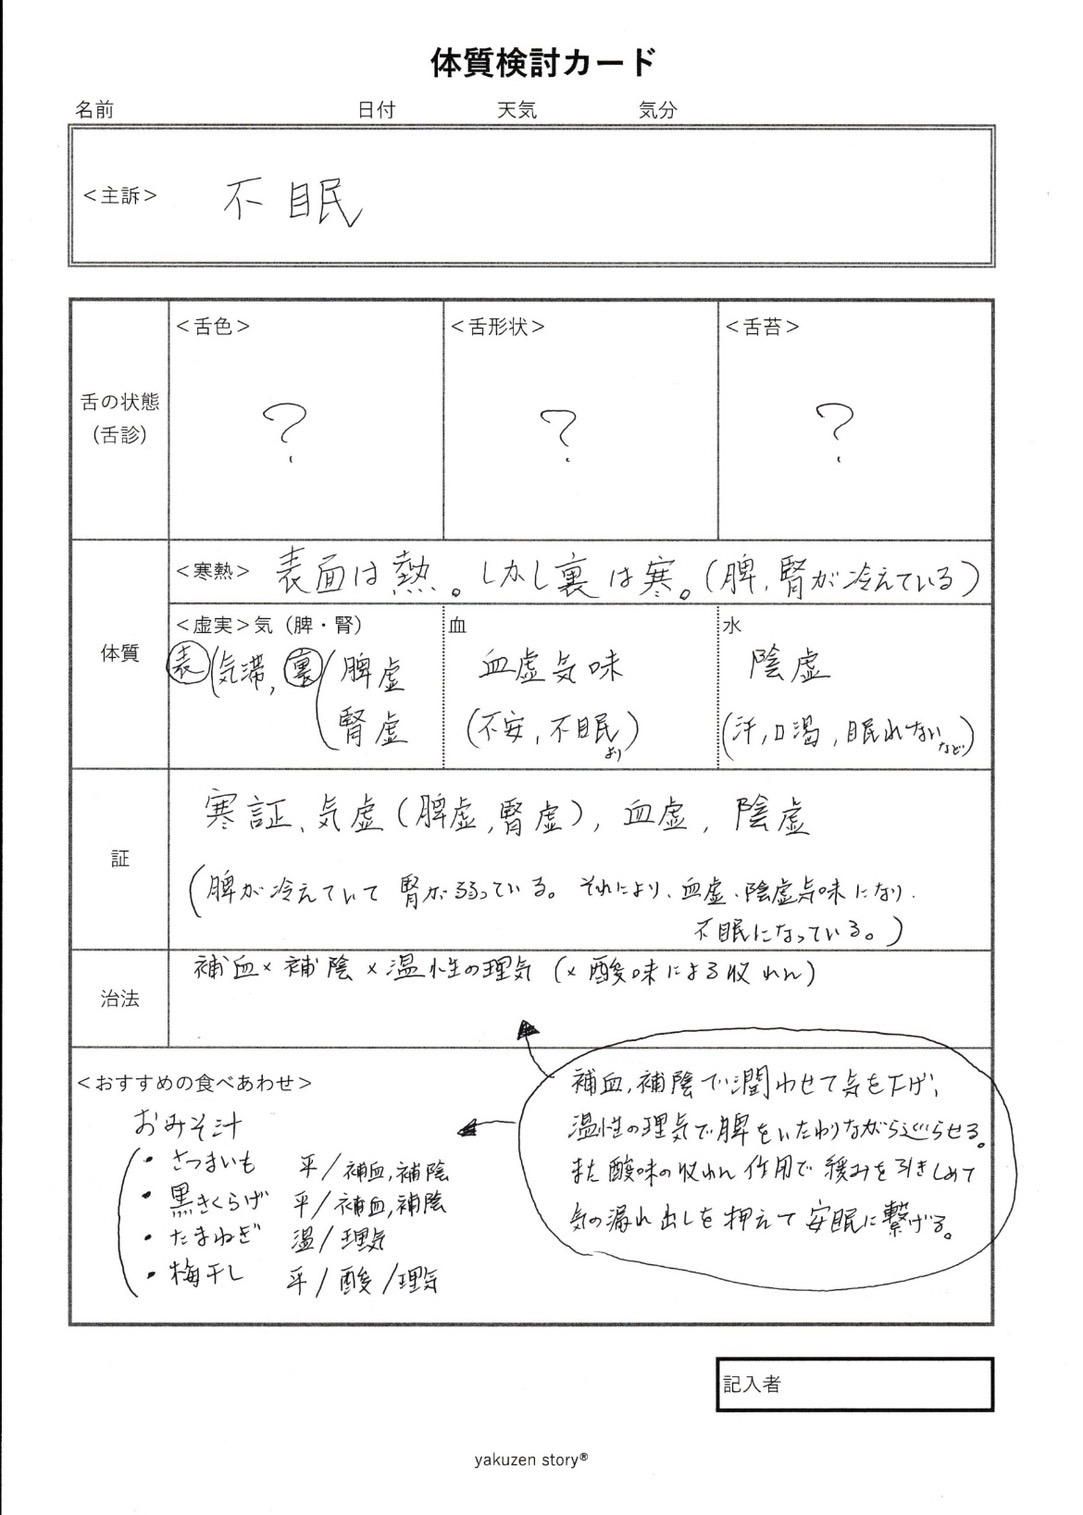 体質検討カード
名前 日付 天気 気分
<主訴> 不眠
<舌色> <舌形状> <舌苔>
舌の状態
(舌診)
? ? ?
体質
<寒熱> 表面は熱。しかし裏は寒。(脾、腎が冷えている)
<虚実>気（脾・腎） 血 水
表(気滞, 裏(脾虚
腎虚
血虚気味
(不安, 不眠より)
陰虚
(汗, 口渇, 眠れないなど)
証
寒証、気虚(脾虚,腎虚), 血虚, 陰虚
(脾が冷えていて腎が弱っている。それにより、血虚・陰虚気味になり、
不眠になっている。)
治法
補血×補陰×温性の理気 (×酸味による収れん)
<おすすめの食べあわせ>
おみそ汁
・さつまいも 平/補血,補陰
・黒きくらげ 平/補血,補陰
・たまねぎ 温/理気
・梅干し 平/酸/理気
補血,補陰で潤わせて気を下げ、
温性の理気で脾をいたわりながら巡らせる。
また酸味の収れん作用で緩みを引きしめて
気の漏れ出しを押えて安眠に繋げる。
記入者
yakuzen story®